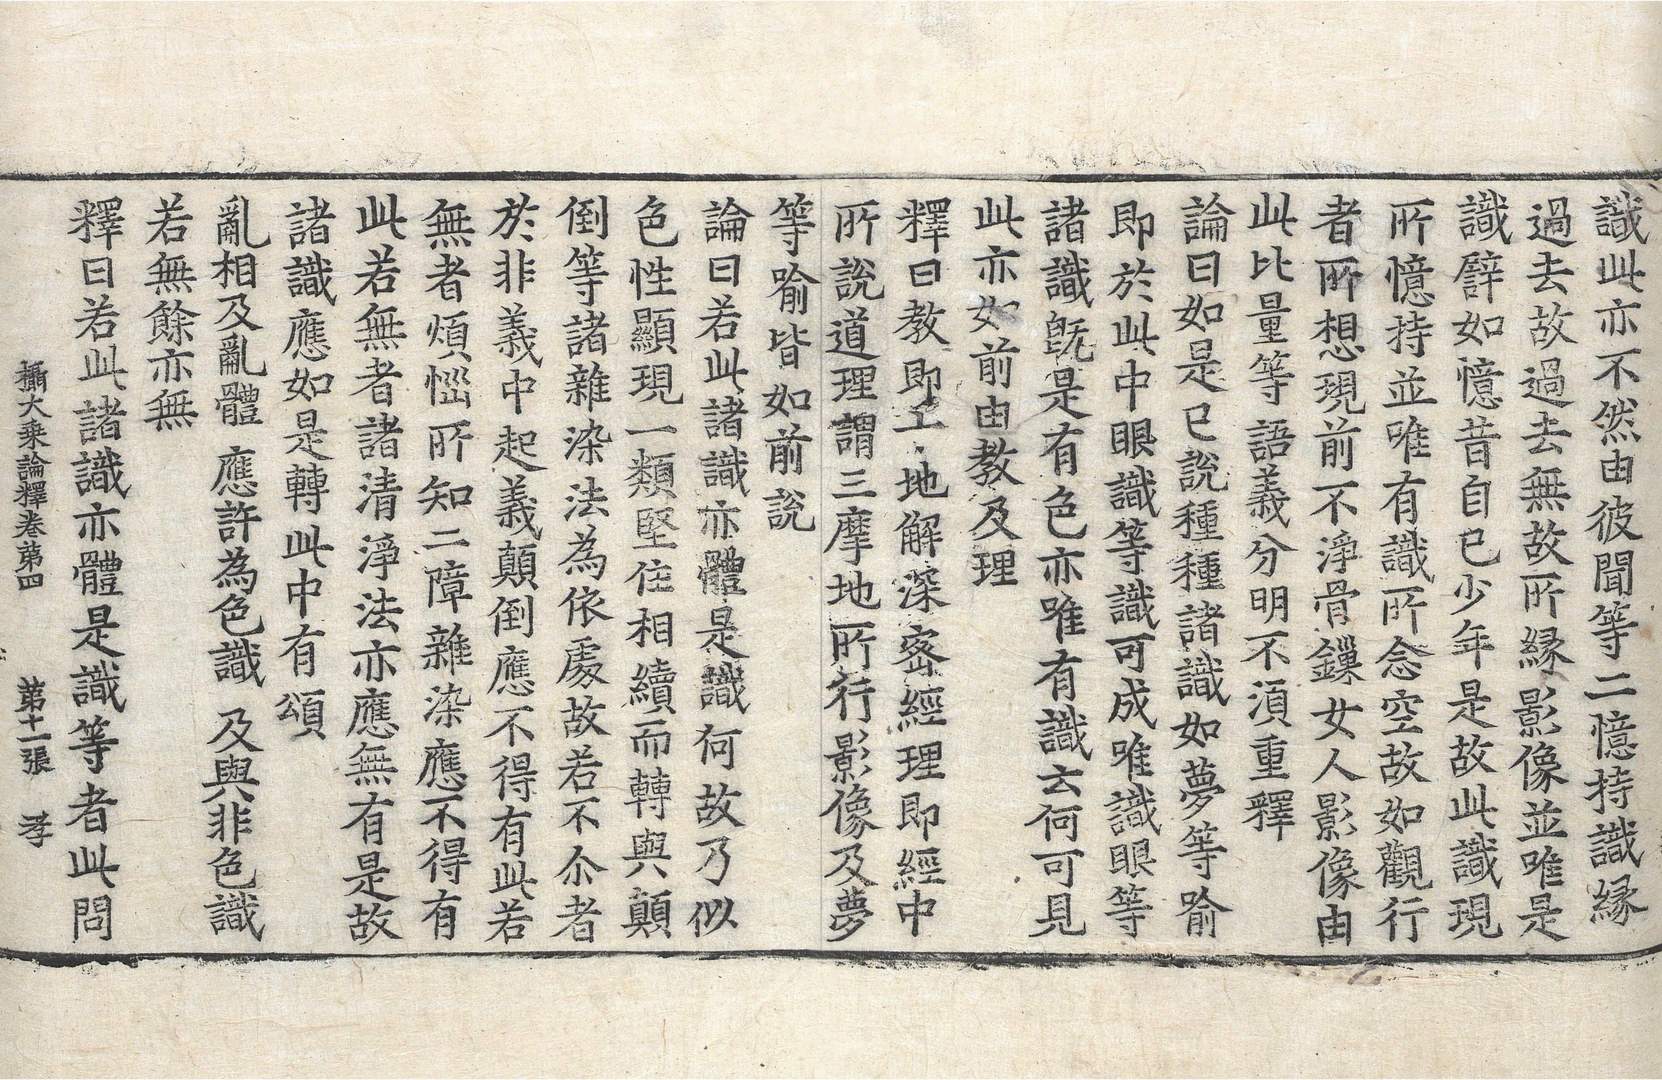 識此亦不然由彼聞等二憶持識緣
過去故過去無故所緣影像並唯是
識譬如憶昔自己少年是故此識現
所憶持並唯有識所念空故如觀行
者所想現前不淨骨鏁女人影像由
此比量等語義分明不須重釋
論曰如是已說種種諸識如夢等喻
即於此中眼識等識可成唯識眼等
諸識旣是有色亦唯有識云何可見
此亦如前由教及理
釋曰教即十地解深密經理即經中
所說道理謂三摩地所行影像及夢
等喻皆如前說
論曰若此諸識亦體是識何故乃似
色性顯現一類堅住相續而轉與顛
倒等諸雜染法為依處故若不尒者
於非義中起義顛倒應不得有此若
無者煩惱所知二障雜染應不得有
此若無者諸清淨法亦應無有是故
諸識應如是轉此中有頌
亂相及亂體 應許為色識 及與非色識
若無餘亦無
釋曰若此諸識亦體是識等者此問
攝大乘論釋卷第四 第十一張 孝